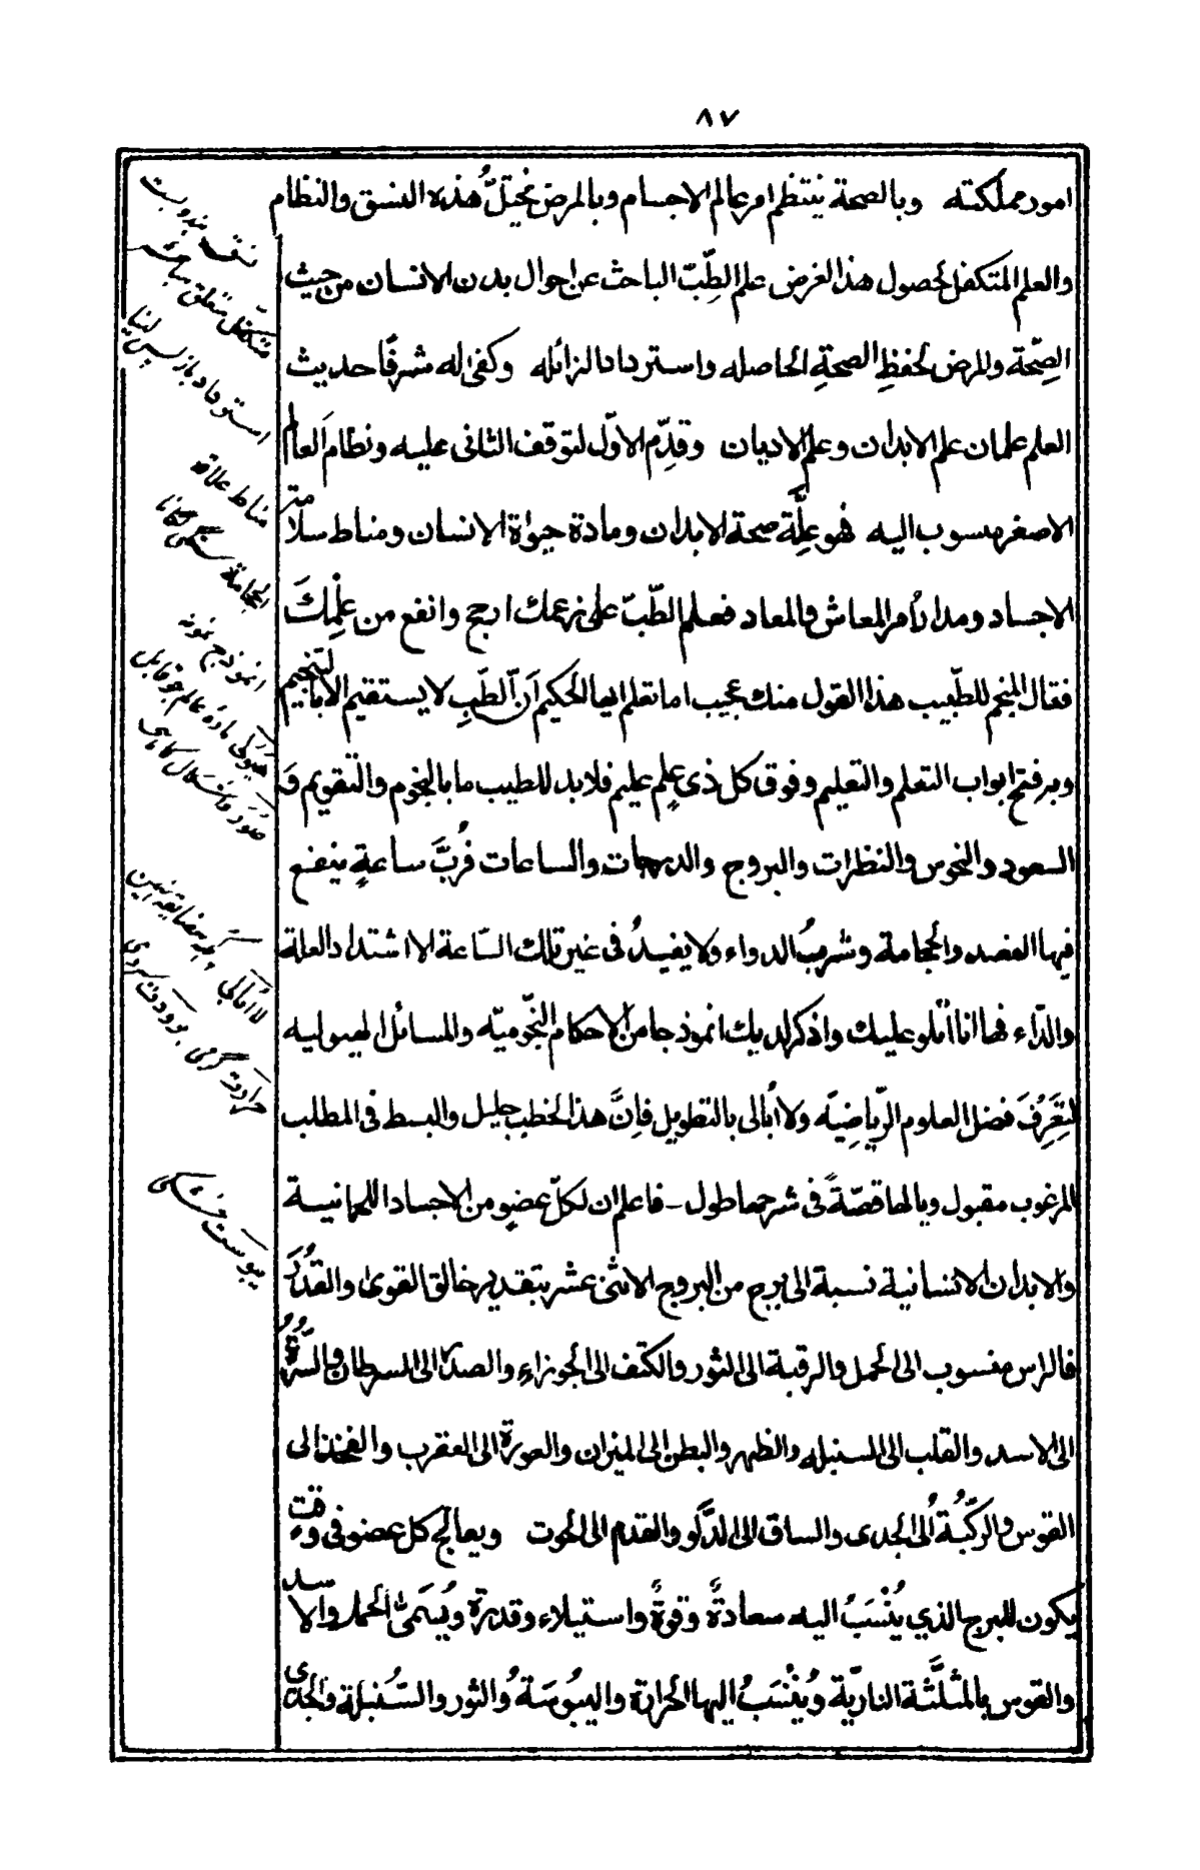 ٨٧
امور مملكته وبالصحة ينتظم امر عالم الاجسام وبالمرض يختلُّ هذه النسق والنظام
والعلم المتكفل لحصول هذا الغرض علم الطِّبّ الباحث عن احوال بدن الانسان من حيث
الصِّحّة والمرض لحفظِ الصحةِ الحاصله واسترداد الزائله وكفىٰ له شرفًا حديث
العلم علمان علم الابدان وعلم الاديان وقدِّم الاوّل لتوقف الثانى عليه ونظام العالم
الاصغر منسوب اليه فهو علّة صحة الابدان ومادة حيٰوة الانسان ومناط سلامة
الاجساد ومدار أمر المعاش والمعاد فعلم الطّبّ على زعمك ارجح وانفع من عِلْمِكَ
فقال المنجم للطّبيب هذا القول منك عجيب اما تعلم ايها الحكيم اَنّ الطّبِ لا يستقيم الا بالتنجيم
وبه فتح ابواب التعلم والتعليم وفوق كل ذى عِلمٍ عليم فلا بد للطبيب ما بالنجوم والتقويم وَ
السعود والنحوس والنظرات والبروج والدرجات والساعات فرُبَّ ساعةٍ ينفع
فيها الفصد والحجامة وشربُ الدواء ولا يفيدُ فى غير تلك السّاعة الا اشتداد العلة
والدّاء فها انا اتلو عليك واذكر لديك انموذجا من الاحكام النجّوميّه والمسائل الهيوليه
لتَعرِفَ فضل العلوم الرّياضِيّه ولا اُبالى بالتطويل فاِنَّ هذا الخطب جليل والبسط فى المطلب
المرغوب مقبول ويالها قصّةً فى شرحها طول - فاعلم ان لكلّ عضوٍ من الاجساد اللحمانيسة
والابدان الانسانية نسبة الى برج من البروج الاثنى عشر بتقدير خالق القوىٰ والقُدَرَ
فالراس منسوب الى الحمل والرقبة الى الثور والكتف الى الجوزاء والصدر الى السرطان والسُّرَّةُ
الى الاسد والقلب الى السنبله والظهر والبطن الى الميزان والعورة الى العقرب والفخذ الى
القوس والركبَةُ اُلى الجدى والساق الى الدَّلو والقدم الى الحوت ويعالج كل عضو فى وقت
يكون للبرج الذي يُنْسَبُ اليه سعادةً وقوةً واستيلاء وقدرة ويُسَمىّ الحمل والاسد
والقوس بالمثلَّثة الناريّة ويُنْسَبُ اليها الحرارة واليبُوسَةُ والثور والسّنُبلة والجدى
نسق بندوبست
متكفّل متعلق
استرداد باز پس لينا
مناط علاقه
الحجامة سنگى لگانا
انموذج نمونه
هيولى ماده عالم
حرارت گرمى برودت سردى
يبوست خشكى